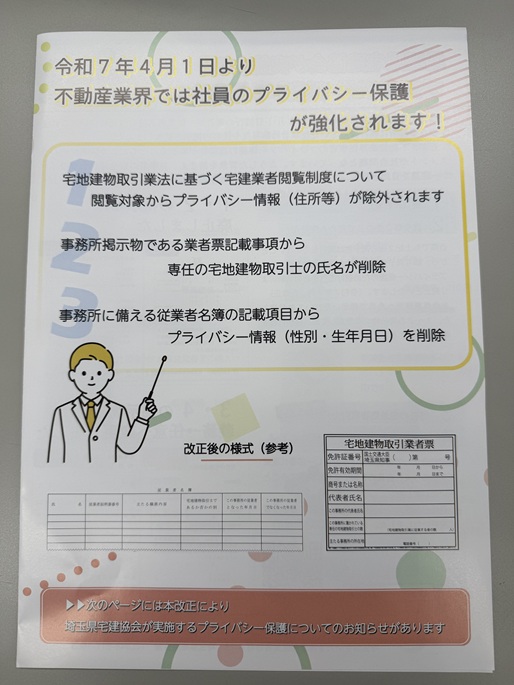 令和７年４月１日より
不動産業界では社員のプライバシー保護
が強化されます！
1
宅地建物取引業法に基づく宅建業者閲覧制度について
閲覧対象からプライバシー情報（住所等）が除外されます
2
事務所掲示物である業者票記載事項から
専任の宅地建物取引士の氏名が削除
3
事務所に備える従業者名簿の記載項目から
プライバシー情報（性別・生年月日）を削除
改正後の様式（参考）
従業者名簿
宅地建物取引業者票
免許証番号 国土交通大臣 埼玉県知事 （ ）第 号
免許有効期間 年 月 日から
年 月 日まで
商号または名称
代表者氏名
この事務所の代表者氏名
▶▶次のページには本改正により
埼玉県宅建協会が実施するプライバシー保護についてのお知らせがあります